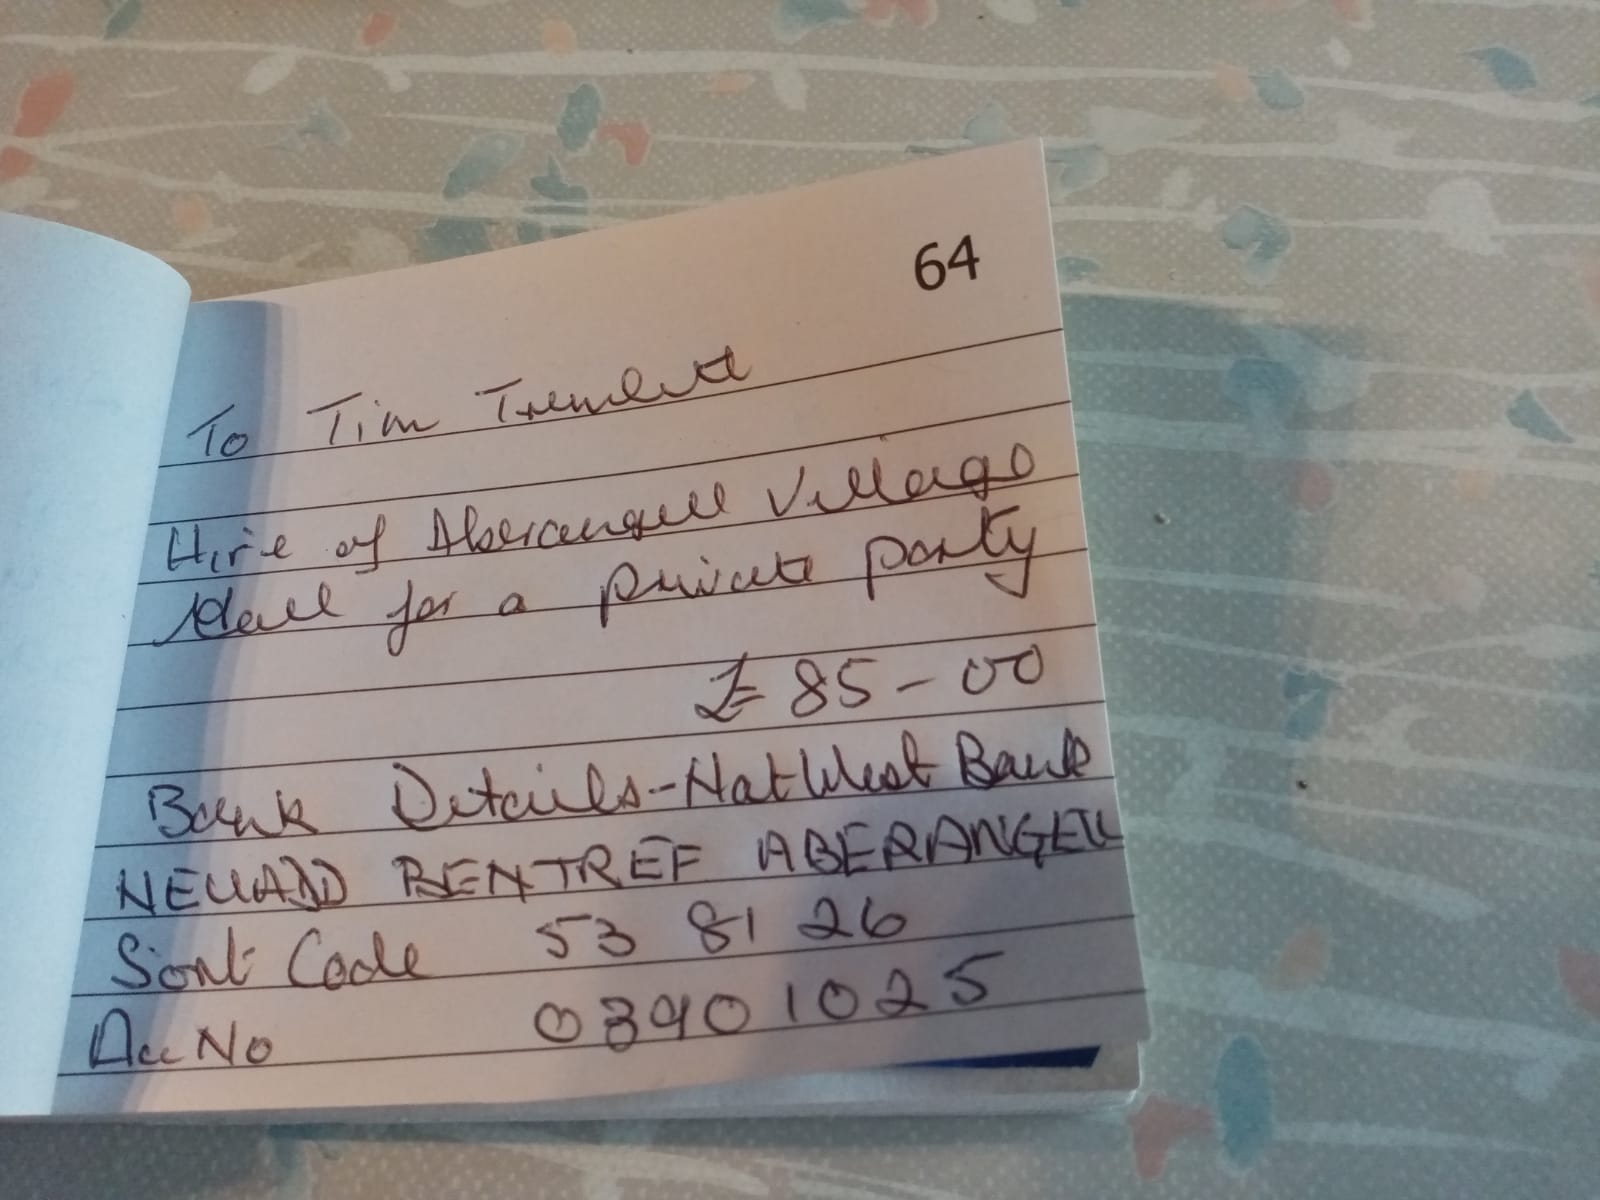 64
To Tim Tremlett
Hire of Aberangell Village
Hall for a private party
£85-00
Bank Details - NatWest Bank
NEUADD PENTREF ABERANGELL
Sort Code 53 81 26
Acc No 03901025